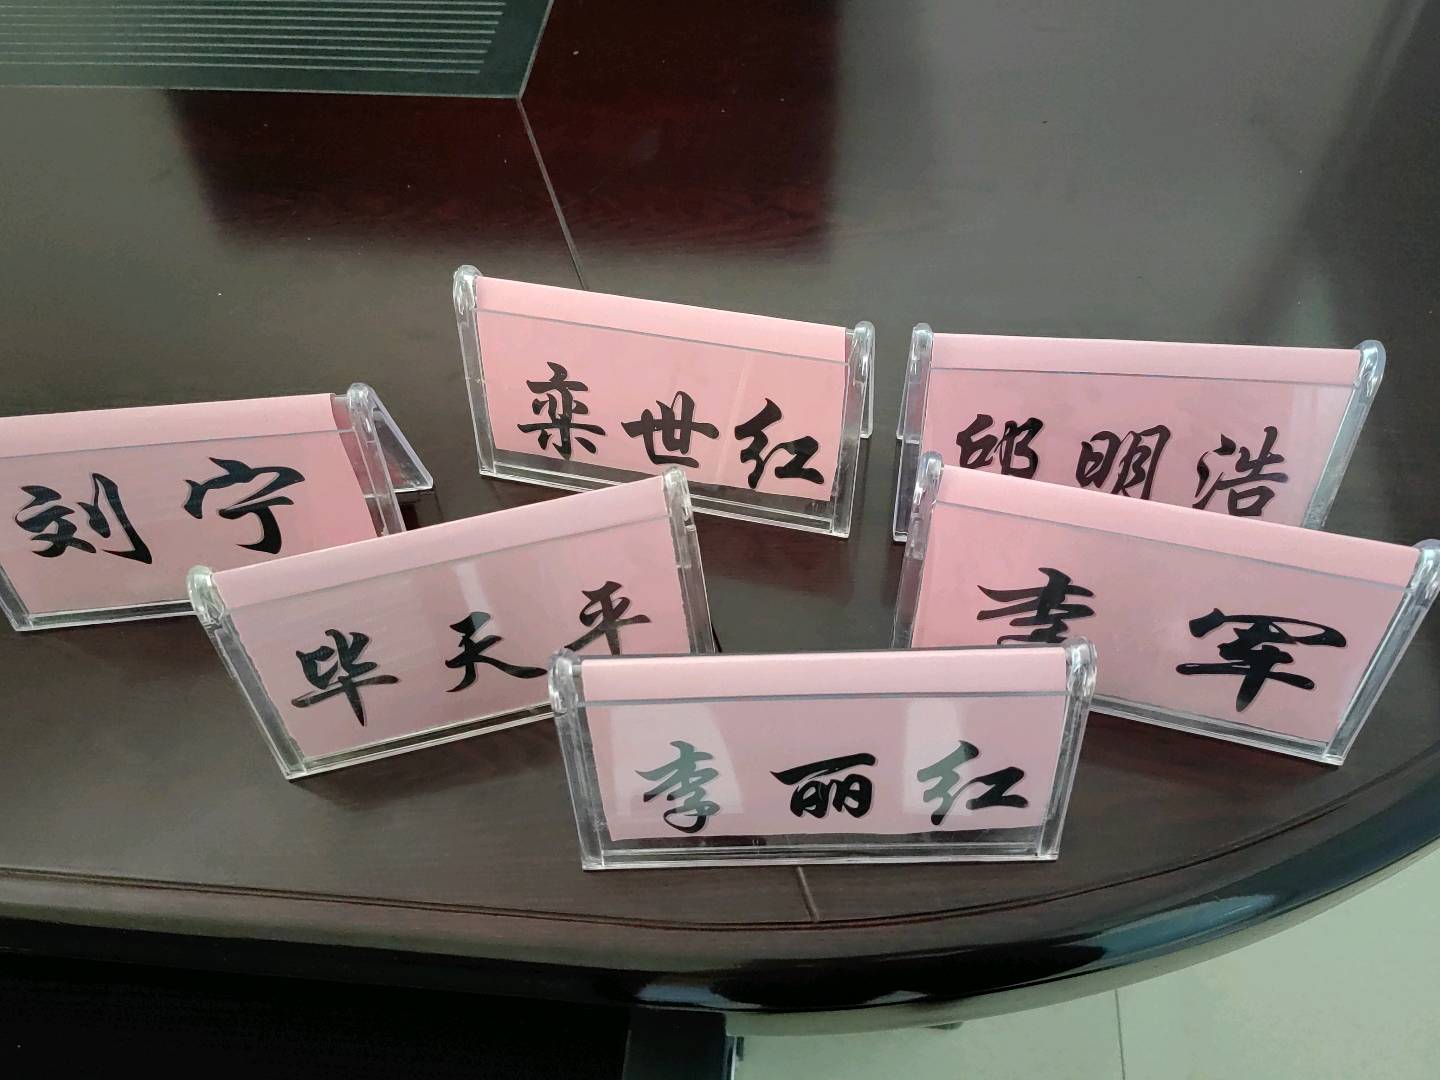 栾世红
邱明浩
刘宁
毕天平
李军
李丽红